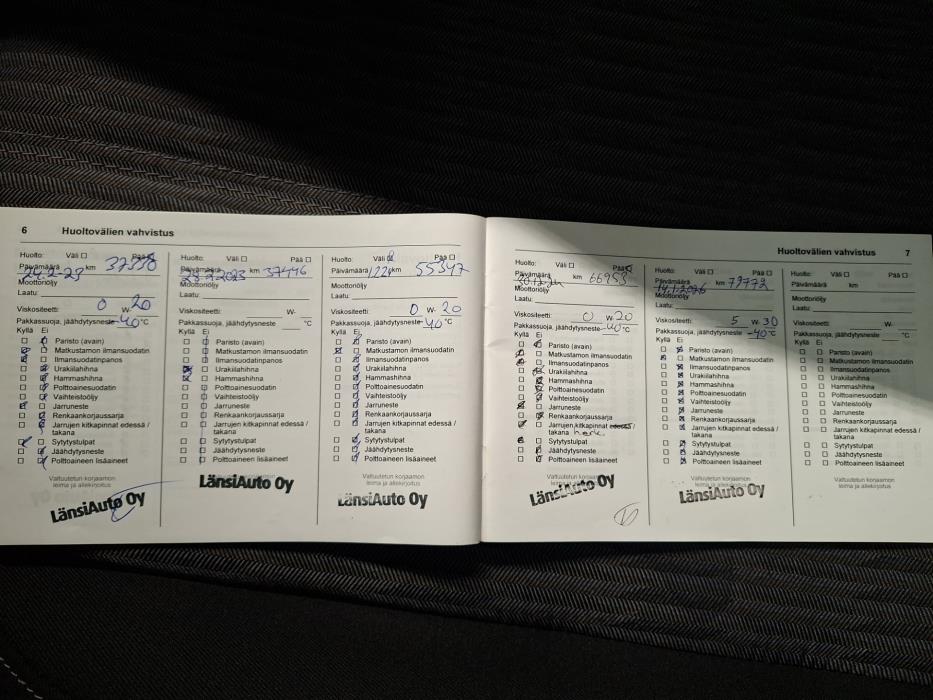 6 Huoltovälien vahvistus
Huolto: Väli ☐ Pää
Päivämäärä 24.2-23 km
Moottoriöljy
Laatu:
Viskositeetti: 0 W- 20
Pakkassuoja, jäähdytysneste -40 °C
Kyllä Ei
Paristo (avain)
Matkustamon ilmansuodatin
Ilmansuodatinpanos
Urakiilahihna
Hammashihna
Polttoainesuodatin
Vaihteistoöljy
Jarruneste
Renkaankorjaussarja
Jarrujen kitkapinnat edessä /
takana
Sytytystulpat
Jäähdytysneste
Polttoaineen lisäaineet
Valtuutetun korjaamon
leima ja allekirjoitus
LänsiAuto Oy
Huolto: Väli ☐ Pää ☐
Päivämäärä 28.2.2023 km 37446
Moottoriöljy
Laatu:
Viskositeetti: W-
Pakkassuoja, jäähdytysneste °C
Kyllä Ei
Paristo (avain)
Matkustamon ilmansuodatin
Ilmansuodatinpanos
Urakiilahihna
Hammashihna
Polttoainesuodatin
Vaihteistoöljy
Jarruneste
Renkaankorjaussarja
Jarrujen kitkapinnat edessä /
takana
Sytytystulpat
Jäähdytysneste
Polttoaineen lisäaineet
LänsiAuto Oy
Huolto: Väli Pää ☐
Päivämäärä km 55347
Moottoriöljy
Laatu:
Viskositeetti: 0 W- 20
Pakkassuoja, jäähdytysneste -40 °C
Kyllä Ei
Paristo (avain)
Matkustamon ilmansuodatin
Ilmansuodatinpanos
Urakiilahihna
Hammashihna
Polttoainesuodatin
Vaihteistoöljy
Jarruneste
Renkaankorjaussarja
Jarrujen kitkapinnat edessä /
takana
Sytytystulpat
Jäähdytysneste
Polttoaineen lisäaineet
Valtuutetun korjaamon
leima ja allekirjoitus
LänsiAuto Oy
Huoltovälien vahvistus 7
Huolto: Väli ☐ Pää
Päivämäärä km
Moottoriöljy
Laatu:
Viskositeetti: 0 W- 20
Pakkassuoja, jäähdytysneste -40 °C
Kyllä Ei
Paristo (avain)
Matkustamon ilmansuodatin
Ilmansuodatinpanos
Urakiilahihna
Hammashihna
Polttoainesuodatin
Vaihteistoöljy
Jarruneste
Renkaankorjaussarja
Jarrujen kitkapinnat edessä /
takana
Sytytystulpat
Jäähdytysneste
Polttoaineen lisäaineet
Valtuutetun korjaamon
leima ja allekirjoitus
LänsiAuto Oy
Huolto: Väli ☐ Pää ☐
Päivämäärä km 79772
Moottoriöljy
Laatu:
Viskositeetti: 5 W- 30
Pakkassuoja, jäähdytysneste -40 °C
Kyllä Ei
Paristo (avain)
Matkustamon ilmansuodatin
Ilmansuodatinpanos
Urakiilahihna
Hammashihna
Polttoainesuodatin
Vaihteistoöljy
Jarruneste
Renkaankorjaussarja
Jarrujen kitkapinnat edessä /
takana
Sytytystulpat
Jäähdytysneste
Polttoaineen lisäaineet
Valtuutetun korjaamon
leima ja allekirjoitus
LänsiAuto Oy
Huolto: Väli ☐ Pää ☐
Päivämäärä km
Moottoriöljy
Laatu:
Viskositeetti: W-
Pakkassuoja, jäähdytysneste °C
Kyllä Ei
Paristo (avain)
Matkustamon ilmansuodatin
Ilmansuodatinpanos
Urakiilahihna
Hammashihna
Polttoainesuodatin
Vaihteistoöljy
Jarruneste
Renkaankorjaussarja
Jarrujen kitkapinnat edessä /
takana
Sytytystulpat
Jäähdytysneste
Polttoaineen lisäaineet
Valtuutetun korjaamon
leima ja allekirjoitus